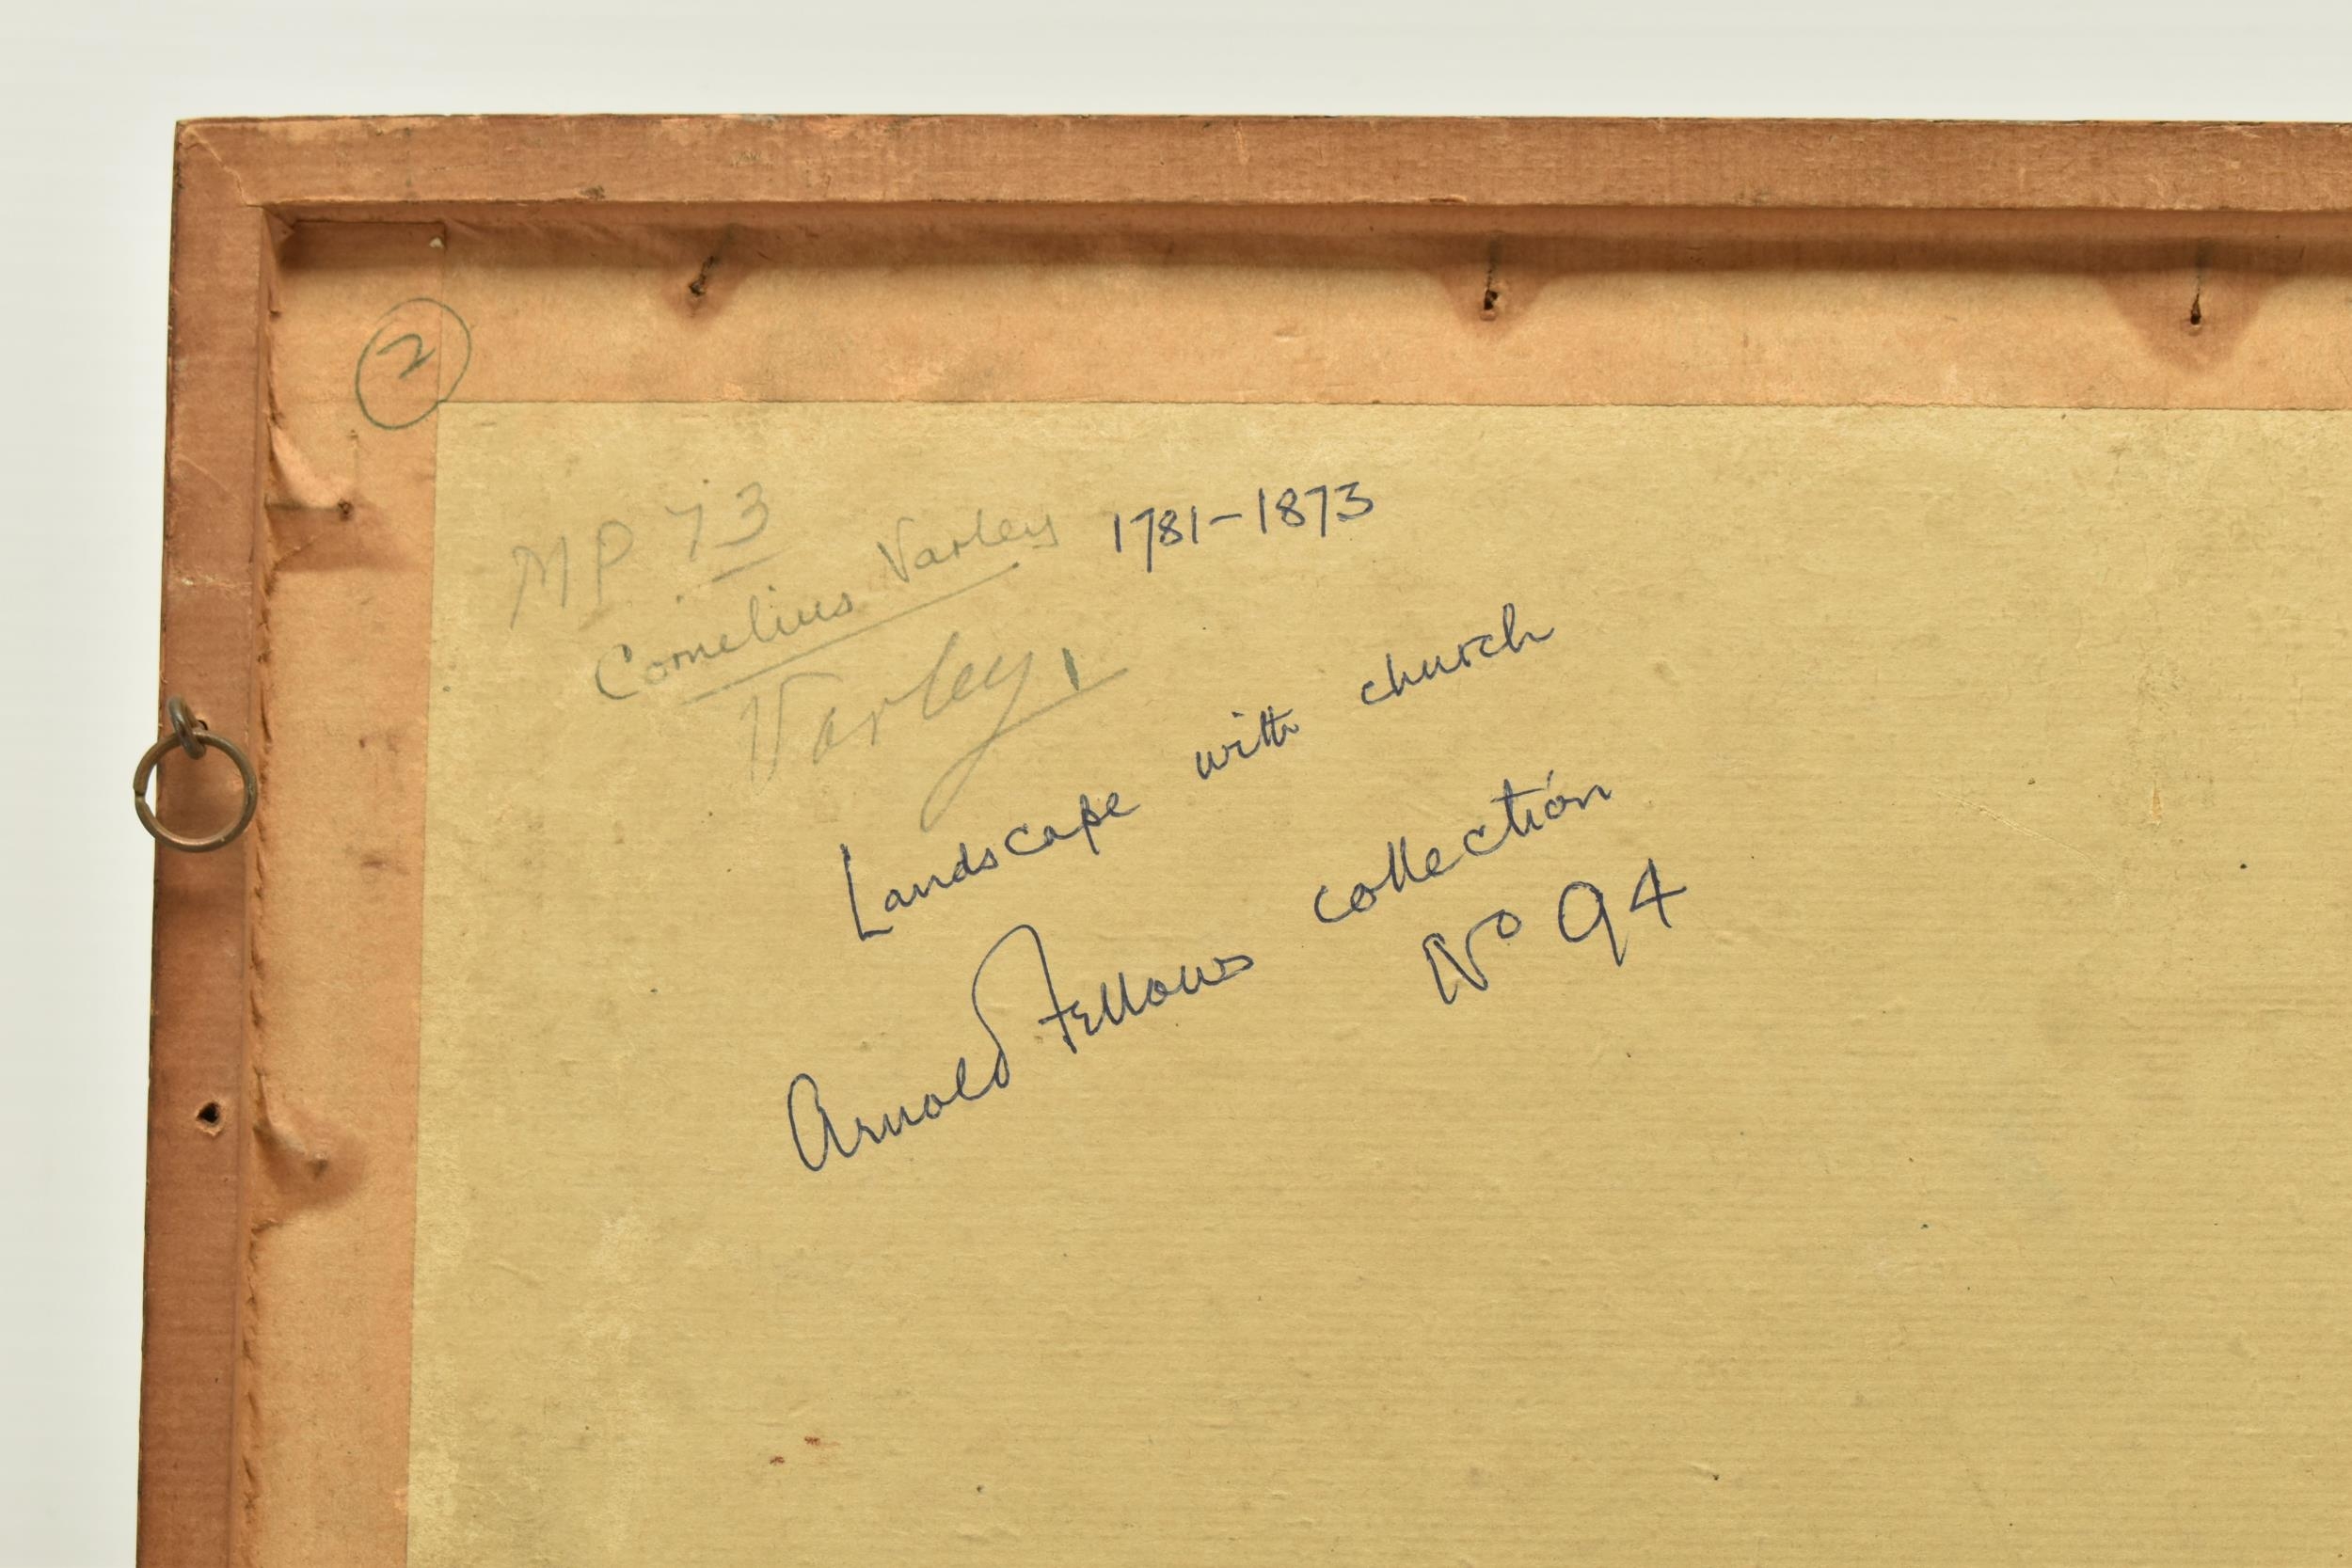 2
MP 73
Cornelius Varley 1781-1873
Varley
Landscape with church
Arnold Fellows collection
No 94